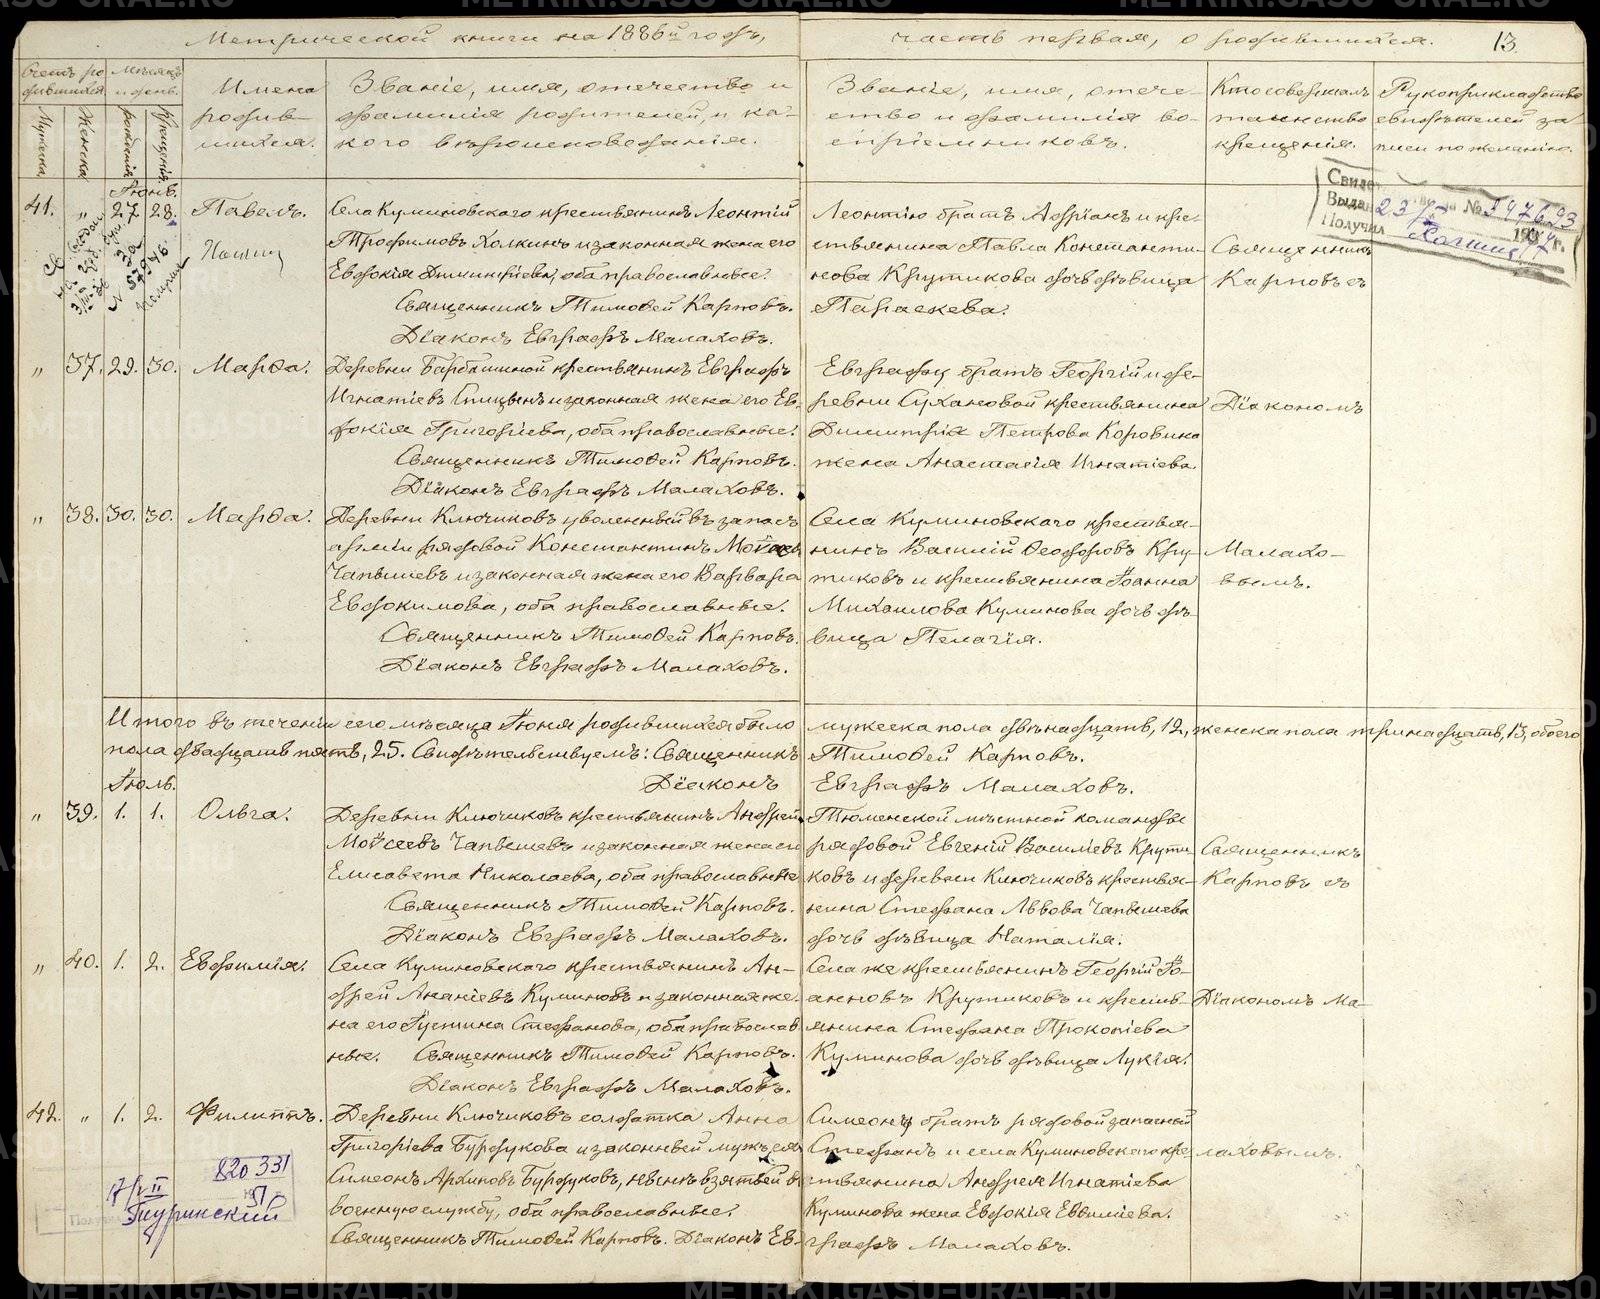 Метрической книги на 1886й годъ,
часть первая, о родившихся.
13.
Счетъ ро-
дившихся.
Мѣсяцъ
и день.
Мужеска.
Женска.
рожденія.
крещенія.
Имена
родив-
шихся.
Званіе, имя, отечество и
фамилія родителей, и ка-
кого вѣроисповѣданія.
Званіе, имя, отече-
ство и фамилія во-
спріемниковъ.
Кто совершалъ
таинство
крещенія.
Рукоприкладство
свидѣтелей за
писи по желанію.
Іюнь.
41. " 27. 28. Павелъ.
Села Куминовскаго крестьянинъ Леонтій
Трофимовъ Холкинъ и законная жена его
Евдокія Димитріева, оба православные.
Священникъ Тимоѳей Карповъ.
Діаконъ Евграфъ Малаховъ.
Леонтію братъ Адріанъ и кре-
стьянина Павла Константи-
нова Крутикова дочь дѣвица
Параскева.
Священникъ
Карповъ съ
" 37. 29. 30. Марѳа.
Деревни Барбашиной крестьянинъ Евграфъ
Игнатіевъ Спицынъ и законная жена его Ев-
докія Григоріева, оба православные.
Священникъ Тимоѳей Карповъ.
Діаконъ Евграфъ Малаховъ.
Евграфу братъ Георгій и де-
ревни Сухановой крестьянина
Димитрія Петрова Коровина
жена Анастасія Игнатіева.
Діакономъ
" 38. 30. 30. Марѳа.
Деревни Ключиковъ уволенный въ запасъ
арміи рядовой Константинъ Моѵсеевъ
Чапышевъ и законная жена его Варвара
Евдокимова, оба православные.
Священникъ Тимоѳей Карповъ.
Діаконъ Евграфъ Малаховъ.
Села Куминовскаго крестья-
нинъ Василій Ѳеодоровъ Кру-
тиковъ и крестьянина Іоанна
Михаилова Куминова дочь дѣ-
вица Пелагія.
Малахо-
вымъ.
Итого въ теченіи сего мѣсяца Іюня родившихся было мужеска пола двѣнадцать, 12, женска пола тринадцать, 13, обоего
пола двадцать пять, 25. Свидѣтельствуемъ: Священникъ Тимоѳей Карповъ.
Діаконъ Евграфъ Малаховъ.
Іюль.
" 39. 1. 1. Ольга.
Деревни Ключиковъ крестьянинъ Андрей
Моѵсеевъ Чапышевъ и законная жена его
Елисавета Николаева, оба православные
Священникъ Тимоѳей Карповъ.
Діаконъ Евграфъ Малаховъ.
Тюменской мѣстной команды
рядовой Евгеній Василіевъ Крути-
ковъ и деревни Ключиковъ крестья-
нина Стефана Львова Чапышева
дочь дѣвица Наталія.
Священникъ
Карповъ съ
" 40. 1. 2. Евфимія.
Села Куминовскаго крестьянинъ Ан-
дрей Ананіевъ Куминовъ и законная же-
на его Іустина Стефанова, оба православ
ные. Священникъ Тимоѳей Карповъ.
Діаконъ Евграфъ Малаховъ.
Села же крестьянинъ Георгій Іо-
анновъ Крутиковъ и кресть-
янина Стефана Прокопіева
Куминова дочь дѣвица Лукія.
Діакономъ Ма-
42. " 1. 2. Филиппъ.
Деревни Ключиковъ солдатка Анна
Григоріева Бурдукова и законный мужъ ея
Симеонъ Архиповъ Бурдуковъ, нынѣ взятый въ
военную службу, оба православные.
Священникъ Тимоѳей Карповъ. Діаконъ Ев-
Симеону братъ рядовой запасный
Стефанъ и села Куминовскаго кре-
стьянина Андрея Игнатіева
Куминова жена Евдокія Евѳиміева.
графъ Малаховъ.
лаховымъ.
820331
Получил
METRIKI.GASO-URAL.RU